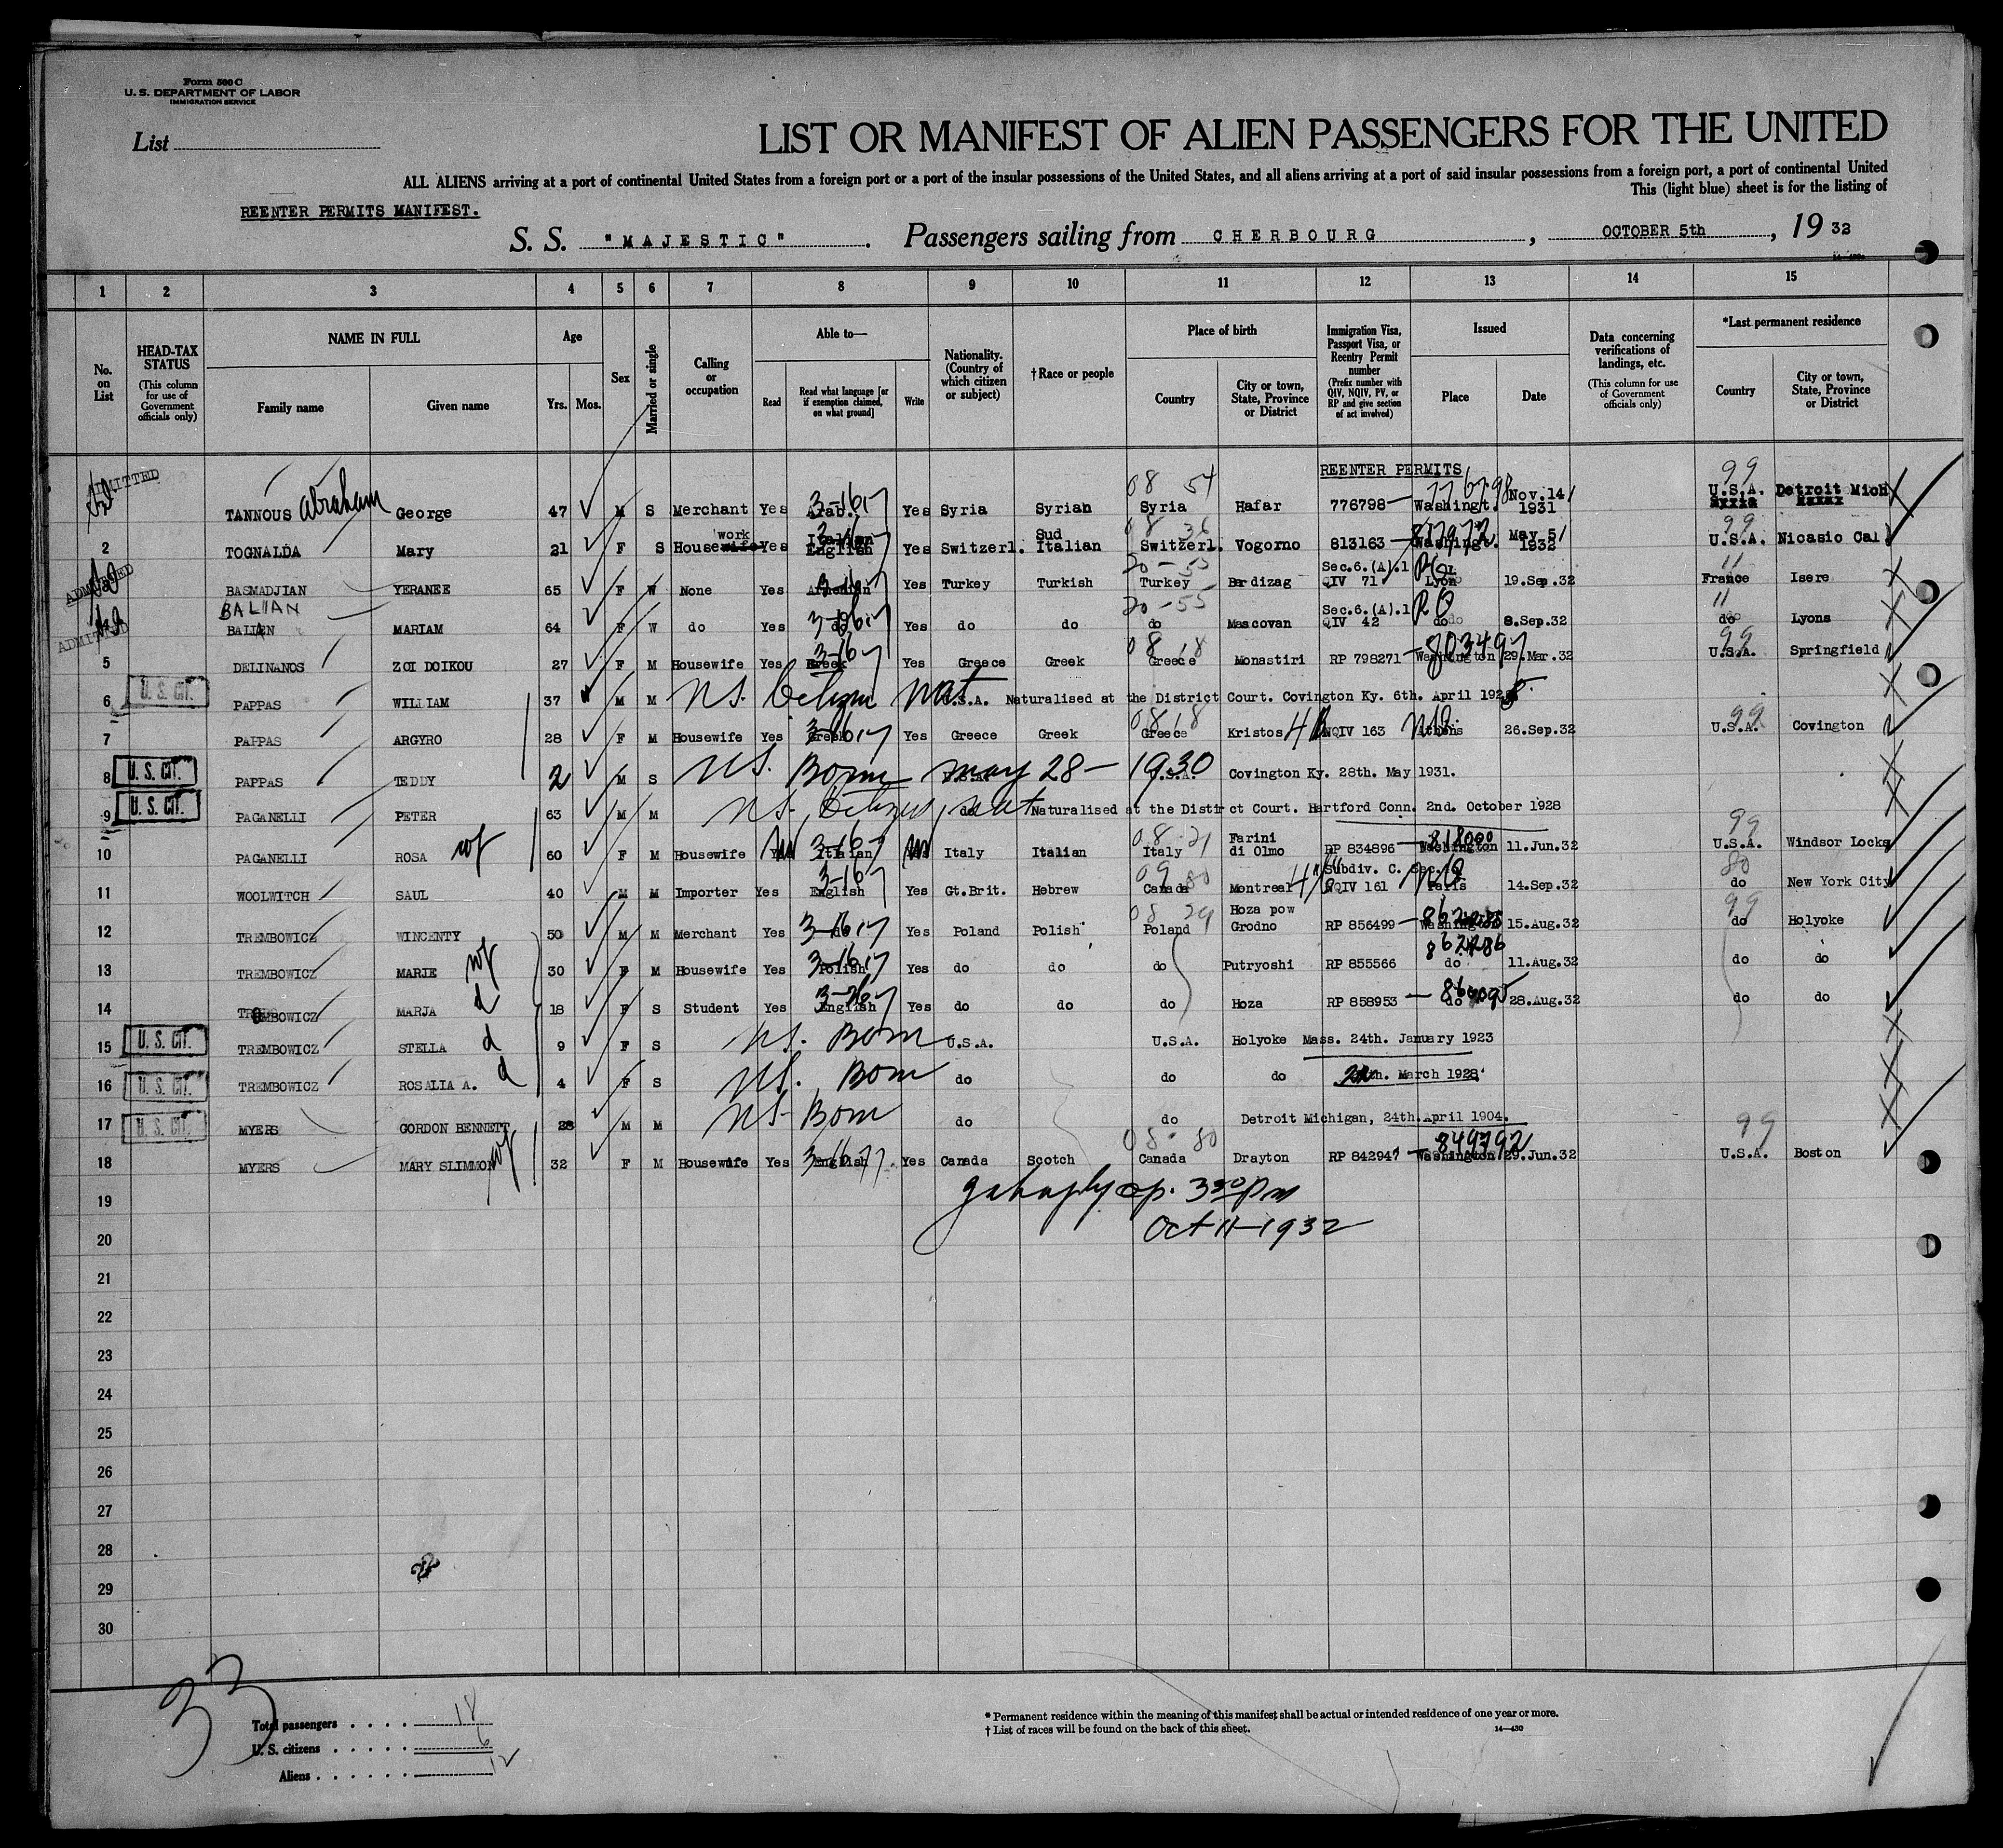 Form 500 C
U. S. DEPARTMENT OF LABOR
IMMIGRATION SERVICE
List
LIST OR MANIFEST OF ALIEN PASSENGERS FOR THE UNITED
ALL ALIENS arriving at a port of continental United States from a foreign port or a port of the insular possessions of the United States, and all aliens arriving at a port of said insular possessions from a foreign port, a port of continental United
This (light blue) sheet is for the listing of
REENTER PERMITS MANIFEST.
S. S. "MAJESTIC" . Passengers sailing from CHERBOURG , OCTOBER 5th , 19 32
1 2 3 4 5 6 7 8 9 10 11 12 13 14 15
No. on List
HEAD-TAX STATUS (This column for use of Government officials only)
NAME IN FULL
Family name
Given name
Age
Yrs. Mos.
Sex
Married or single
Calling or occupation
Able to—
Read
Read what language [or if exemption claimed, on what ground]
Write
Nationality. (Country of which citizen or subject)
†Race or people
Place of birth
Country
City or town, State, Province or District
Immigration Visa, Passport Visa, or Reentry Permit number (Prefix number with QIV, NQIV, PV, or RP and give section of act involved)
Issued
Place
Date
Data concerning verifications of landings, etc. (This column for use of Government officials only)
*Last permanent residence
Country
City or town, State, Province or District
REENTER PERMITS
ADMITTED TANNOUS Abraham George 47 M S Merchant Yes Arab. 3-16-17 Yes Syria Syrian 08 54 Syria Hafar 776798 776798 Washingt. Nov.14 1931 99 U.S.A. Detroit Mich
2 TOGNALDA Mary 21 F S Housework Yes Italian English Yes Switzerl. Sud Italian 08 36 Switzerl. Vogorno 813163 Washingt. May 5 1932 99 U.S.A. Nicasio Cal
ADMITTED BASMADJIAN YERANEE 65 F W None Yes Armenian Yes Turkey Turkish Turkey Bardizag Sec.6.(A).1 QIV 71 Lyon 19.Sep.32 11 France Isere
BALIIAN
ADMITTED BALIAN MARIAM 64 F W do Yes do Yes do do 20-55 do Mascovan Sec.6.(A).1 QIV 42 do 8.Sep.32 11 do Lyons
5 DELINANOS ZOI DOIKOU 27 F M Housewife Yes Greek Yes Greece Greek 08 18 Greece Monastiri RP 798271 803497 Washington 29.Mar.32 99 U.S.A. Springfield
6 U. S. CIT. PAPPAS WILLIAM 37 M M U.S. Citizen Nat U.S.A. Naturalised at the District Court. Covington Ky. 6th. April 1928
7 PAPPAS ARGYRO 28 F M Housewife Yes Greek Yes Greece Greek 08 18 Greece Kristos NQIV 163 Athens 26.Sep.32 99 U.S.A. Covington
8 U. S. CIT. PAPPAS TEDDY 2 M S U.S. Born may 28- 1930 U.S.A. Covington Ky. 28th. May 1931.
9 U. S. CIT. PAGANELLI PETER 63 M M U.S. Citizen, nat do Naturalised at the Distirct Court. Hartford Conn. 2nd. October 1928
10 PAGANELLI ROSA wf 60 F M Housewife Italian Italy Italian 08 21 Italy Farini di Olmo RP 834896 818000 Washington 11.Jun.32 99 U.S.A. Windsor Locks
11 WOOLWITCH SAUL 40 M M Importer Yes English Yes Gt.Brit. Hebrew 09 80 Canada Montreal Subdiv. C. Sec. NQIV 161 Paris 14.Sep.32 80 do New York City
12 TREMBOWICZ WINCENTY 50 M M Merchant Yes do Yes Poland Polish 08 29 Poland Hoza pow Grodno RP 856499 Washington 15.Aug.32 99 do Holyoke
13 TREMBOWICZ MARIE wf 30 F M Housewife Yes Polish Yes do do do Putryoshi RP 855566 862286 do 11.Aug.32 do do
14 TREMBOWICZ MARJA d 18 F S Student Yes English Yes do do do Hoza RP 858953 do 28.Aug.32 do do
15 U. S. CIT. TREMBOWICZ STELLA d 9 F S U.S. Born U.S.A. U.S.A. Holyoke Mass. 24th. January 1923
16 U. S. CIT. TREMBOWICZ ROSALIA A. d 4 F S U.S. Born do do do th. March 1928
17 U. S. CIT. MYERS GORDON BENNETT 28 M M U.S. Born do do Detroit Michigan, 24th.April 1904.
18 MYERS MARY SLIMMON wf 32 F M Housewife Yes English Yes Canada Scotch 08 80 Canada Drayton RP 842947 849792 Washington 29.Jun.32 99 U.S.A. Boston
19
20 Oct 11-1932
21
22
23
24
25
26
27
28
29
30
33
Total passengers . . . . 18
U. S. citizens . . . . . 6
Aliens . . . . . . 12
* Permanent residence within the meaning of this manifest shall be actual or intended residence of one year or more.
† List of races will be found on the back of this sheet. 14—430